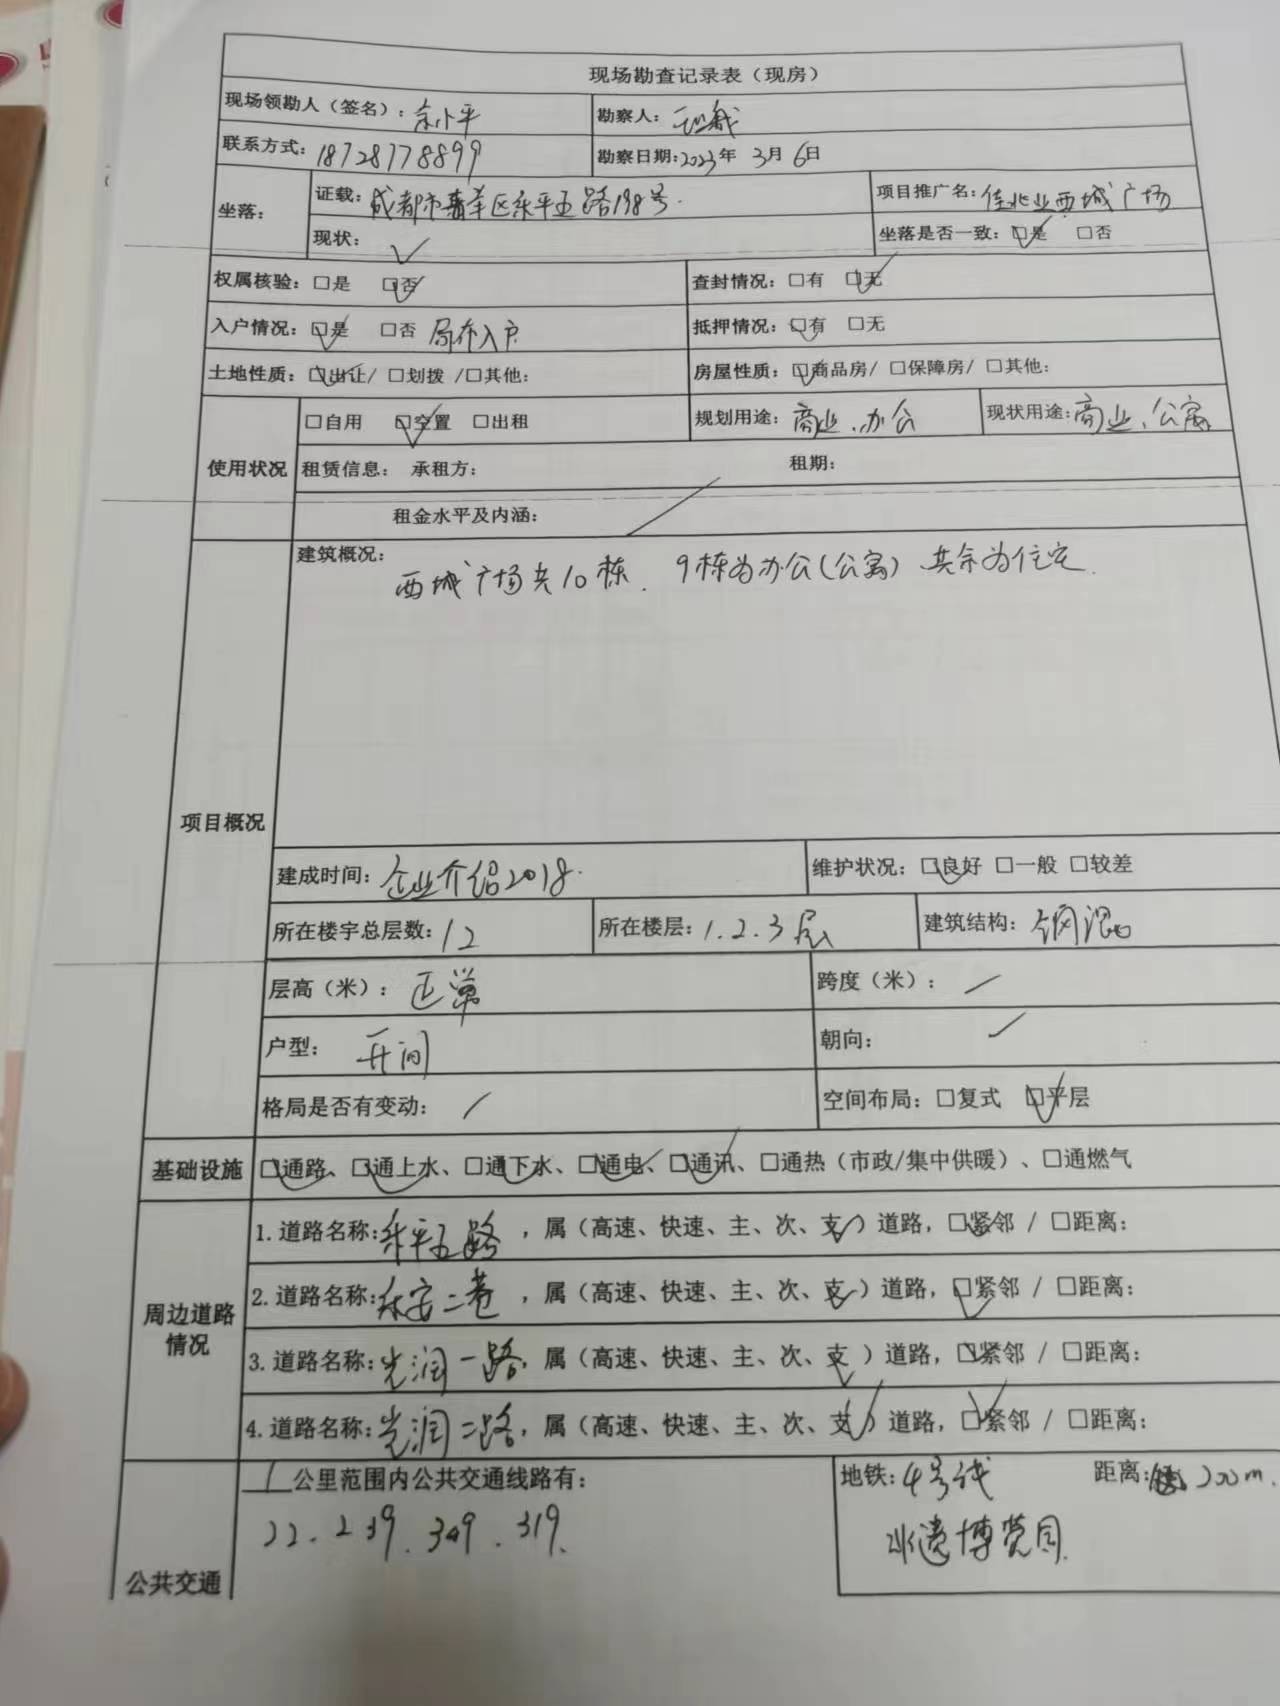 现场勘查记录表（现房）
现场领勘人（签名）：余小平 勘察人：
联系方式：18728778899 勘察日期：2023年 3月 6日
坐落： 证载：成都市青羊区东平五路198号 项目推广名：佳兆业西城广场
现状：✓ 坐落是否一致：☑是 □否
权属核验：□是 ☑否 查封情况：□有 ☑无
入户情况：☑是 □否 局部入户 抵押情况：☑有 □无
土地性质：☑出让/ □划拨 /□其他： 房屋性质：☑商品房/ □保障房/ □其他：
使用状况 □自用 ☑空置 □出租 规划用途：商业、办公 现状用途：商业、公寓
租赁信息： 承租方： 租期：
租金水平及内涵：
项目概况 建筑概况：
西城广场共10栋． 9栋为办公(公寓) 其余为住宅．
建成时间：企业介绍2018． 维护状况：☑良好 □一般 □较差
所在楼宇总层数：12 所在楼层：1.2.3层 建筑结构：钢混
层高（米）：正常 跨度（米）：／
户型：开间 朝向：／
格局是否有变动：／ 空间布局：□复式 ☑平层
基础设施 ☑通路、☑通上水、☑通下水、☑通电、☑通讯、□通热（市政/集中供暖）、□通燃气
周边道路情况 1.道路名称：东平五路，属（高速、快速、主、次、支✓）道路，☑紧邻 / □距离：
2.道路名称：二巷，属（高速、快速、主、次、支✓）道路，☑紧邻 / □距离：
3.道路名称：光润一路，属（高速、快速、主、次、支✓）道路，☑紧邻 / □距离：
4.道路名称：光润二路，属（高速、快速、主、次、支✓）道路，☑紧邻 / □距离：
公共交通 1公里范围内公共交通线路有： 地铁：4号线 距离：200m.
22．239．349．319． 非遗博览园．